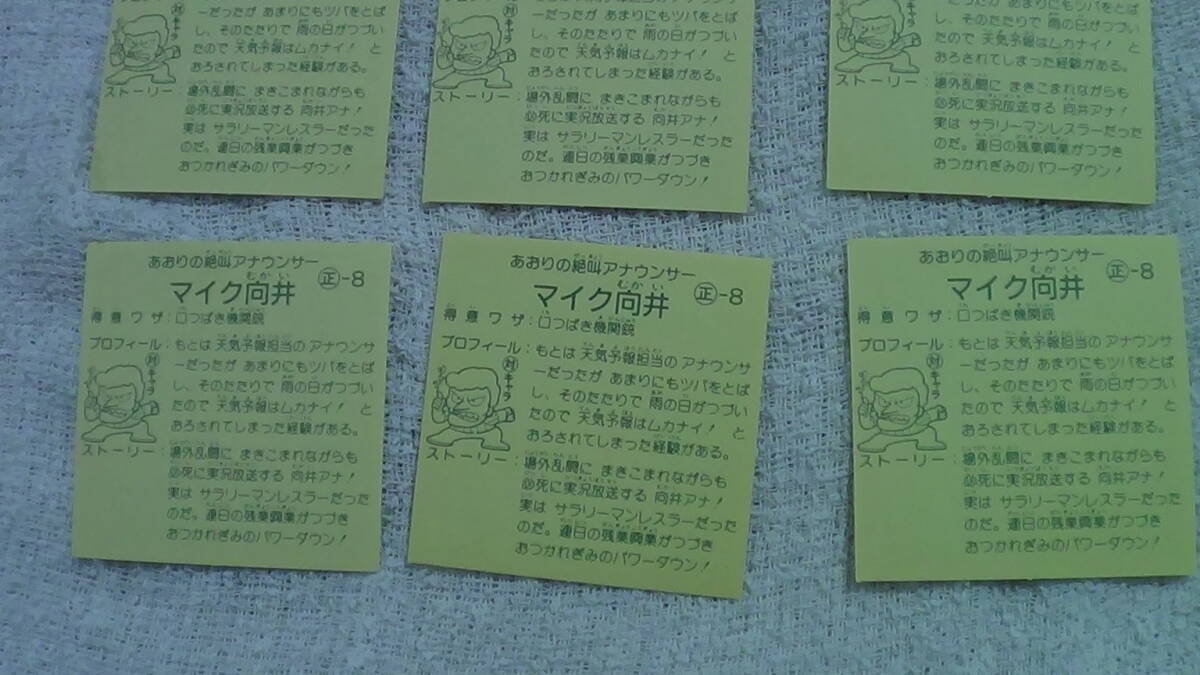 ーだったが あまりにもツバをとば
し、そのたたりで 雨の日がつづい
たので 天気予報はムカナイ! と
おろされてしまった経験がある。
対キャラ
ストーリー:場外乱闘に まきこまれながらも
必死に実況放送する 向井アナ!
実は サラリーマンレスラーだった
のだ。連日の残業興業がつづき
おつかれぎみのパワーダウン!
ーだったが あまりにもツバをとば
し、そのたたりで 雨の日がつづい
たので 天気予報はムカナイ! と
おろされてしまった経験がある。
対キャラ
ストーリー:場外乱闘に まきこまれながらも
必死に実況放送する 向井アナ!
実は サラリーマンレスラーだった
のだ。連日の残業興業がつづき
おつかれぎみのパワーダウン!
し、そのたたりで 雨の日がつづい
たので 天気予報はムカナイ! と
おろされてしまった経験がある。
キャラ
ストーリー:場外乱闘に まきこまれながらも
必死に実況放送する 向井アナ!
実は サラリーマンレスラーだった
のだ。連日の残業興業がつづき
おつかれぎみのパワーダウン!
あおりの絶叫アナウンサー
むかい
マイク向井 ㊣-8
得意ワザ:口つばき機関銃
プロフィール:もとは 天気予報担当の アナウンサ
ーだったが あまりにもツバをとば
し、そのたたりで 雨の日がつづい
たので 天気予報はムカナイ! と
おろされてしまった経験がある。
対キャラ
ストーリー:場外乱闘に まきこまれながらも
必死に実況放送する 向井アナ!
実は サラリーマンレスラーだった
のだ。連日の残業興業がつづき
おつかれぎみのパワーダウン!
あおりの絶叫アナウンサー
むかい
マイク向井 ㊣-8
得意ワザ:口つばき機関銃
プロフィール:もとは 天気予報担当の アナウンサ
ーだったが あまりにもツバをとば
し、そのたたりで 雨の日がつづい
たので 天気予報はムカナイ! と
おろされてしまった経験がある。
対キャラ
ストーリー:場外乱闘に まきこまれながらも
必死に実況放送する 向井アナ!
実は サラリーマンレスラーだった
のだ。連日の残業興業がつづき
おつかれぎみのパワーダウン!
あおりの絶叫アナウンサー
むかい
マイク向井 ㊣-8
得意ワザ:口つばき機関銃
プロフィール:もとは 天気予報担当の アナウンサ
ーだったが あまりにもツバをとば
し、そのたたりで 雨の日がつづい
たので 天気予報はムカナイ! と
おろされてしまった経験がある。
対キャラ
ストーリー:場外乱闘に まきこまれながらも
必死に実況放送する 向井アナ!
実は サラリーマンレスラーだった
のだ。連日の残業興業がつづき
おつかれぎみのパワーダウン!